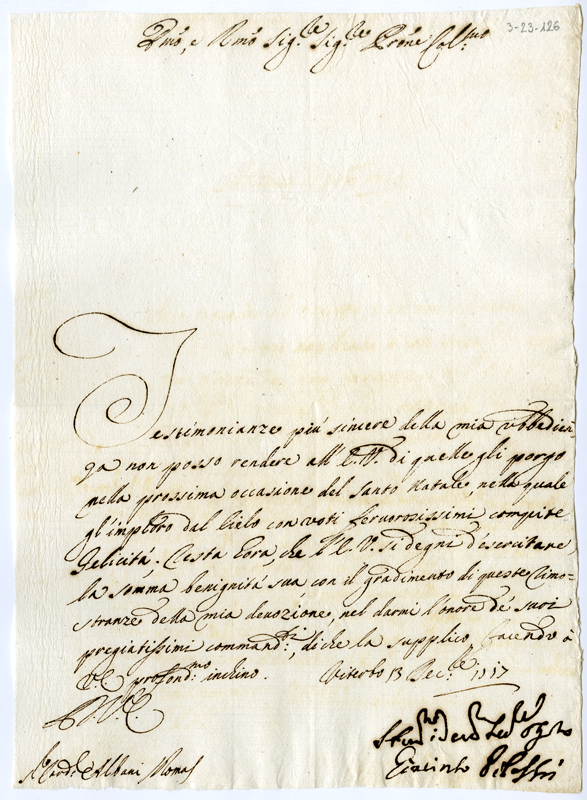 Em̃o, e Rm̃o Sig.re Sig.re Prõne Col.mo
3-23-126
Testimonianze più sincere della mia ubbedien-
za non posso rendere all'E.V. di quelle gli porgo
nella prossima occasione del Santo Natale, nella quale
gl'imploro dal Cielo con voti fervorosissimi compite
felicità. Resta hora, che l'E.V. si degni d'esercitare
la somma benignità sua con il gradimento di queste dimo-
stranze della mia devozione, nel darmi l'onore de suoi
pregiatissimi command.ti, di che la supplico, facendo à
V.E. profond.mo inchino. Viterbo 13 Dec.re 1717
D.V.E.
S.r Card.l Albani Roma
Giacinto